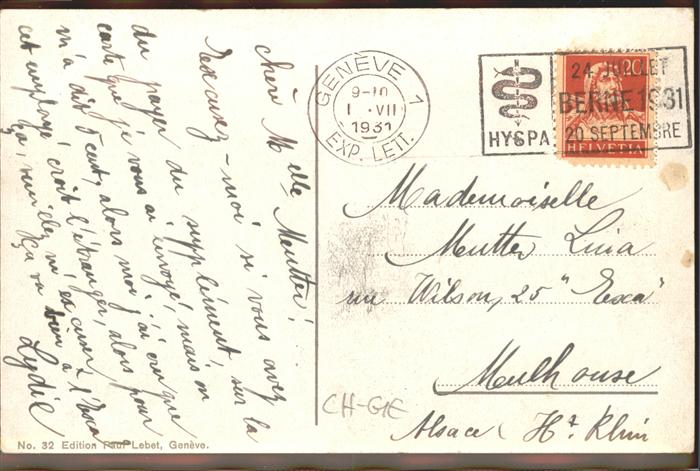 chère Melle Mutter!
Excusez-moi si vous avez
du payer du supplément, sur la
carte que je vous ai envoyé, mais on
m'a dit 5 cent, alors moi j'ai cru que
cet employé croit l'étranger, alors pour
ça, veuillez m'excuser,
ça va bien à l'Exca
Lydie
GENÈVE 1
9-10
1 · VII
1931
EXP. LETT.
HYSPA
24 JUILLET
BERNE 1931
20 SEPTEMBRE
20
HELVETIA
Mademoiselle
Mutter Lina
rue Wilson, 25 "Exca"
Mulhouse
Alsace (Ht. Rhin
CH-GE
No. 32 Edition Paul Lebet, Genève.